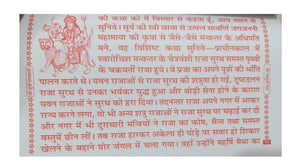 की कथा को मैं विस्तार से कहता हूँ, आप ध्यान से
सुनिये। सूर्य की रखी छाया से उत्पन्न सावर्णि जगजननी
महामाया की कृपा से जैसे-जैसे मन्वन्तर के अधिपति
बने, वह विशिष्ट कथा सुनिये—प्राचीनकाल में
स्वारोचिष मन्वन्तर के चैत्रवंशी राजा सुरथ समस्त पृथ्वी
के चक्रवर्ती राजा हुये। वे प्रजा का अपने पुत्रों की भाँति
पालन करते थे। यवन राजाओं से राजा सुरथ की शत्रुता हो गई, दुष्टदलन
राजा सुरथ से उनका भयंकर युद्ध हुआ और थोड़ी सेना होने के कारण
यवन राजाओं ने सुरथ को हरा दिया। तदनन्तर राजा अपने नगर में आकर
राज्य करने लगा, तो भी अन्य शत्रु राजाओं ने राजा सुरथ पर चढ़ाई कर दी
और नगर में भी दुराचारी मन्त्रियों ने राजा का कोष, सैन्य तथा समस्त
वस्तुयें छीन लीं। तब राजा हारकर अकेला ही घोड़े पर सवार हो शिकार
खेलने के बहाने घोर जंगल में चला गया। वहाँ उन्होंने महर्षि मेधा का